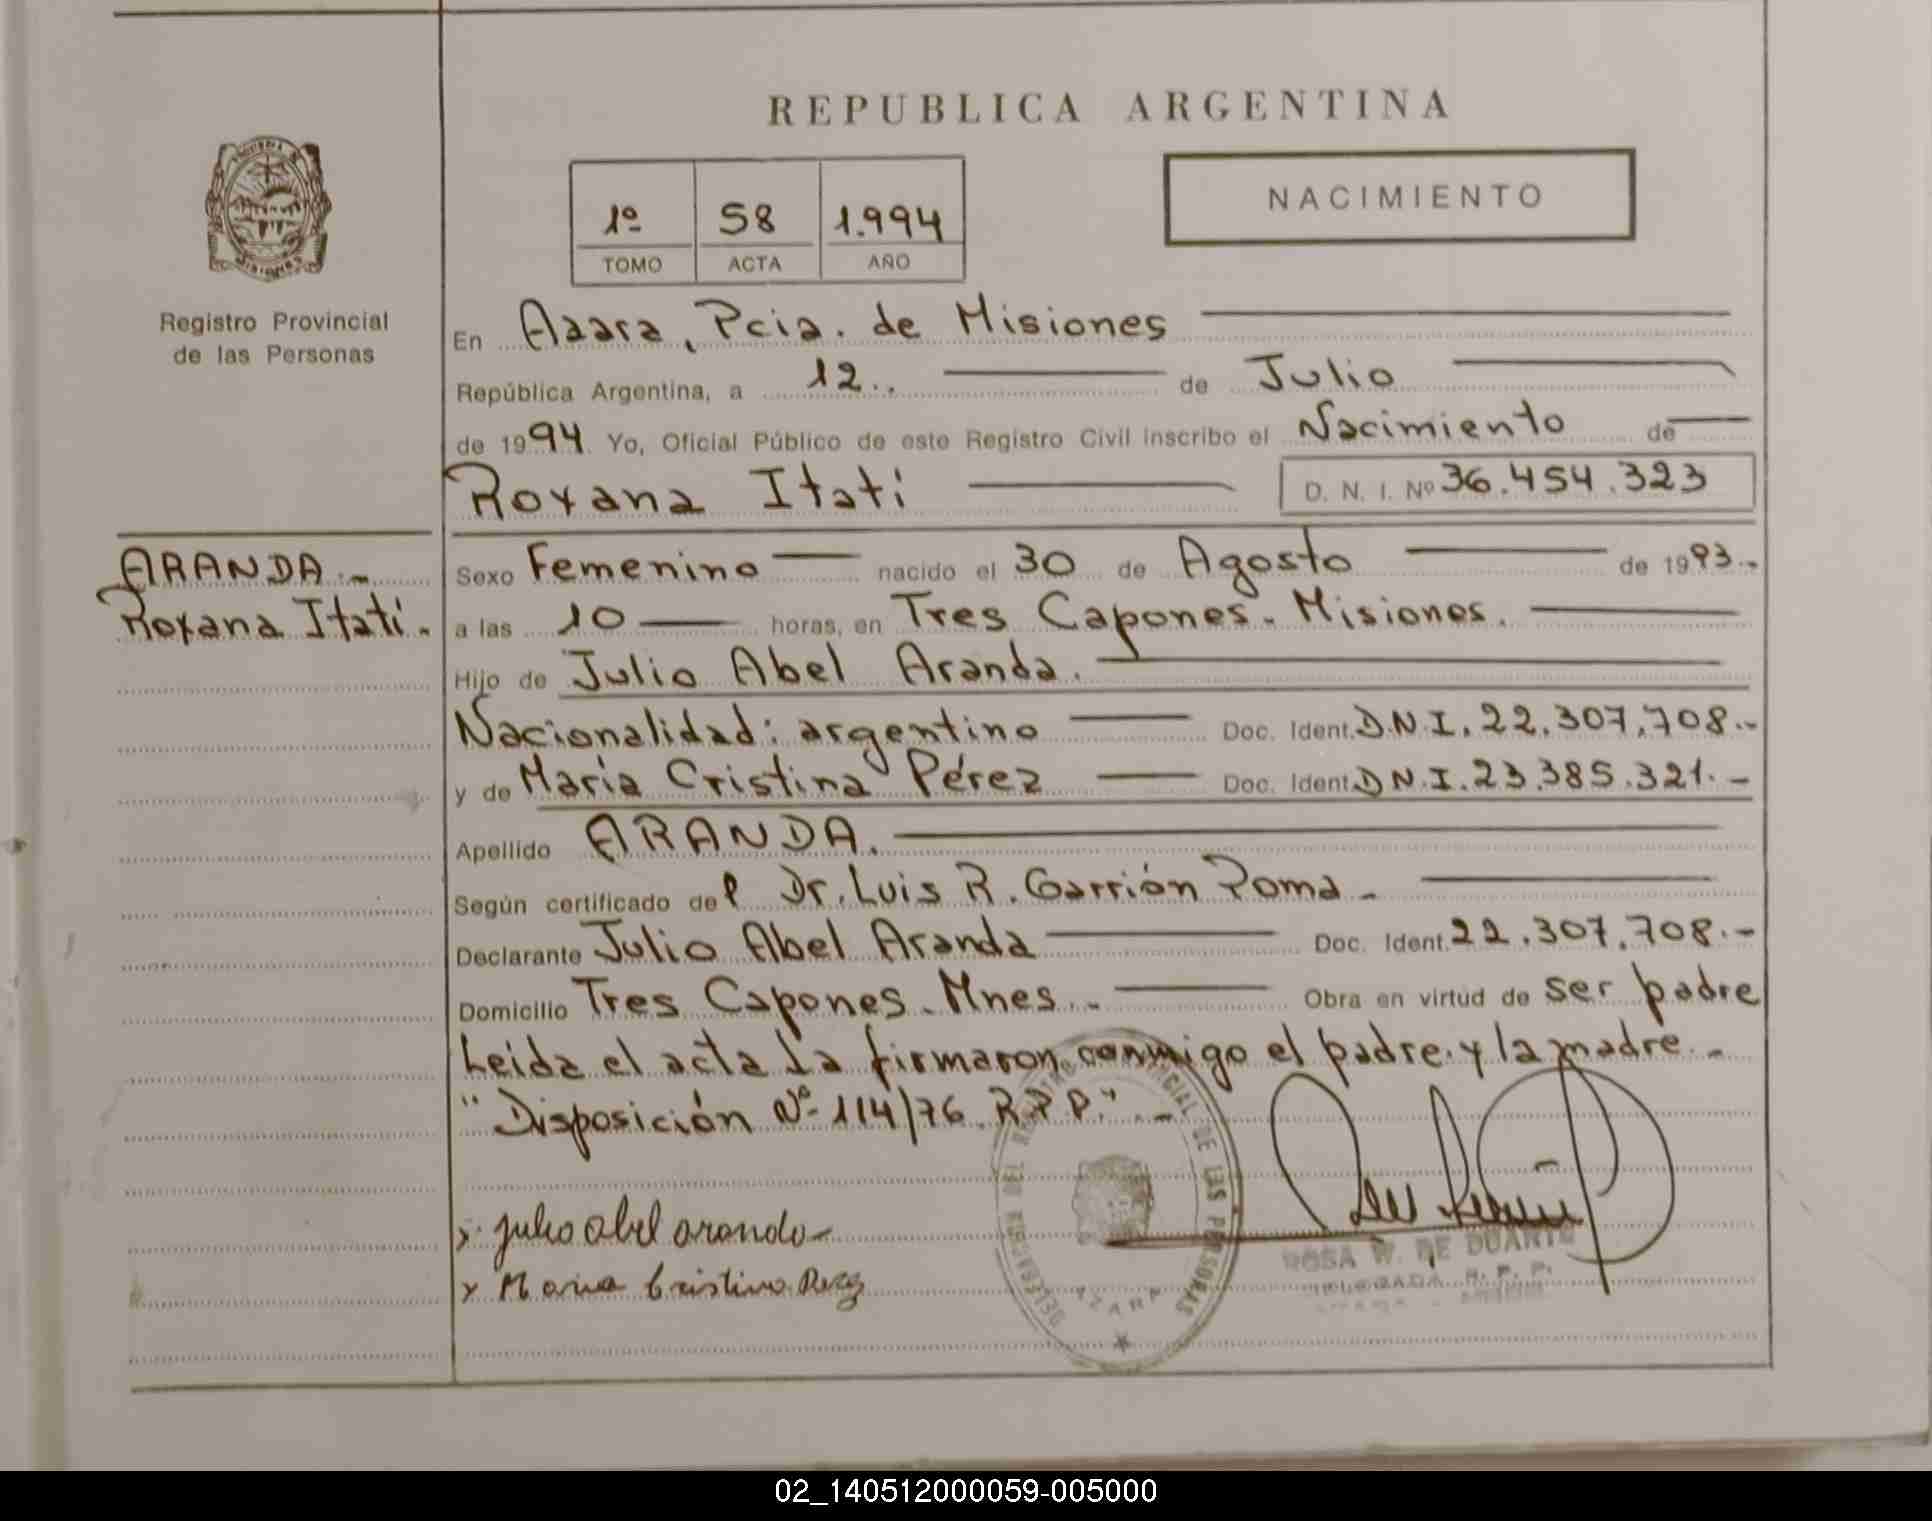 REPUBLICA ARGENTINA
1º 58 1.994
TOMO ACTA AÑO
NACIMIENTO
Registro Provincial
de las Personas
En Azara, Pcia. de Misiones
República Argentina, a 12.. de Julio
de 1994. Yo, Oficial Público de este Registro Civil inscribo el Nacimiento de
Roxana Itatí D. N. I. Nº 36.454.323
ARANDA.-
Roxana Itatí.
Sexo Femenino nacido el 30 de Agosto de 1993.-
a las 10 horas, en Tres Capones - Misiones.
Hijo de Julio Abel Aranda.
Nacionalidad: argentino Doc. Ident. D.N.I. 22.307.708.-
y de María Cristina Pérez Doc. Ident. D.N.I. 23.385.321.-
Apellido ARANDA.
Según certificado del Dr. Luis R. Carrión Poma -
Declarante Julio Abel Aranda Doc. Ident. 22.307.708.-
Domicilio Tres Capones - Mnes.. - Obra en virtud de ser padre
Leida el acta la firmaron conmigo el padre y la madre.-
"Disposición Nº 114/76. R.P.P." -
x julio abel aranda
x Maria Cristina Perez
DELEGACION DEL REGISTRO PROVINCIAL DE LAS PERSONAS
AZARA
ROSA W. DE DUARTE
DELEGADA R. P. P.
02_140512000059-005000